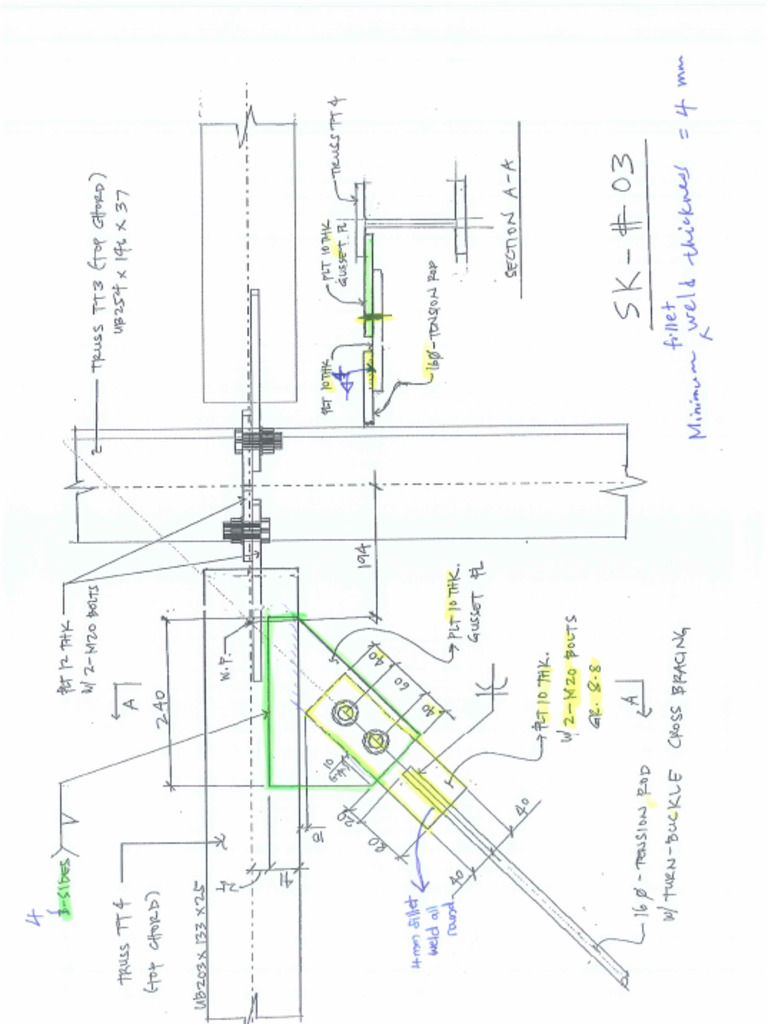 TRUSS TT3 (TOP CHORD)
UB254 x 146 x 37
PLT 12 THK
W/ 2-M20 BOLTS
A
240
W.P.
194
4
3-SIDES
TRUSS TT4
(TOP CHORD)
UB203 x 133 x 25
PLT 10 THK.
GUSSET PL
5
40
60
40
10
GAP
10
40
40
PLT 10 THK.
W/ 2-M20 BOLTS
GR. 8.8
A
16Ø-TENSION ROD
W/ TURN-BUCKLE CROSS BRACING
4mm fillet
weld all
round
TRUSS TT4
PLT 10 THK
GUSSET PL
PLT 10 THK
4
16Ø-TENSION ROD
SECTION A-A
SK-#03
Minimum fillet weld thickness = 4 mm